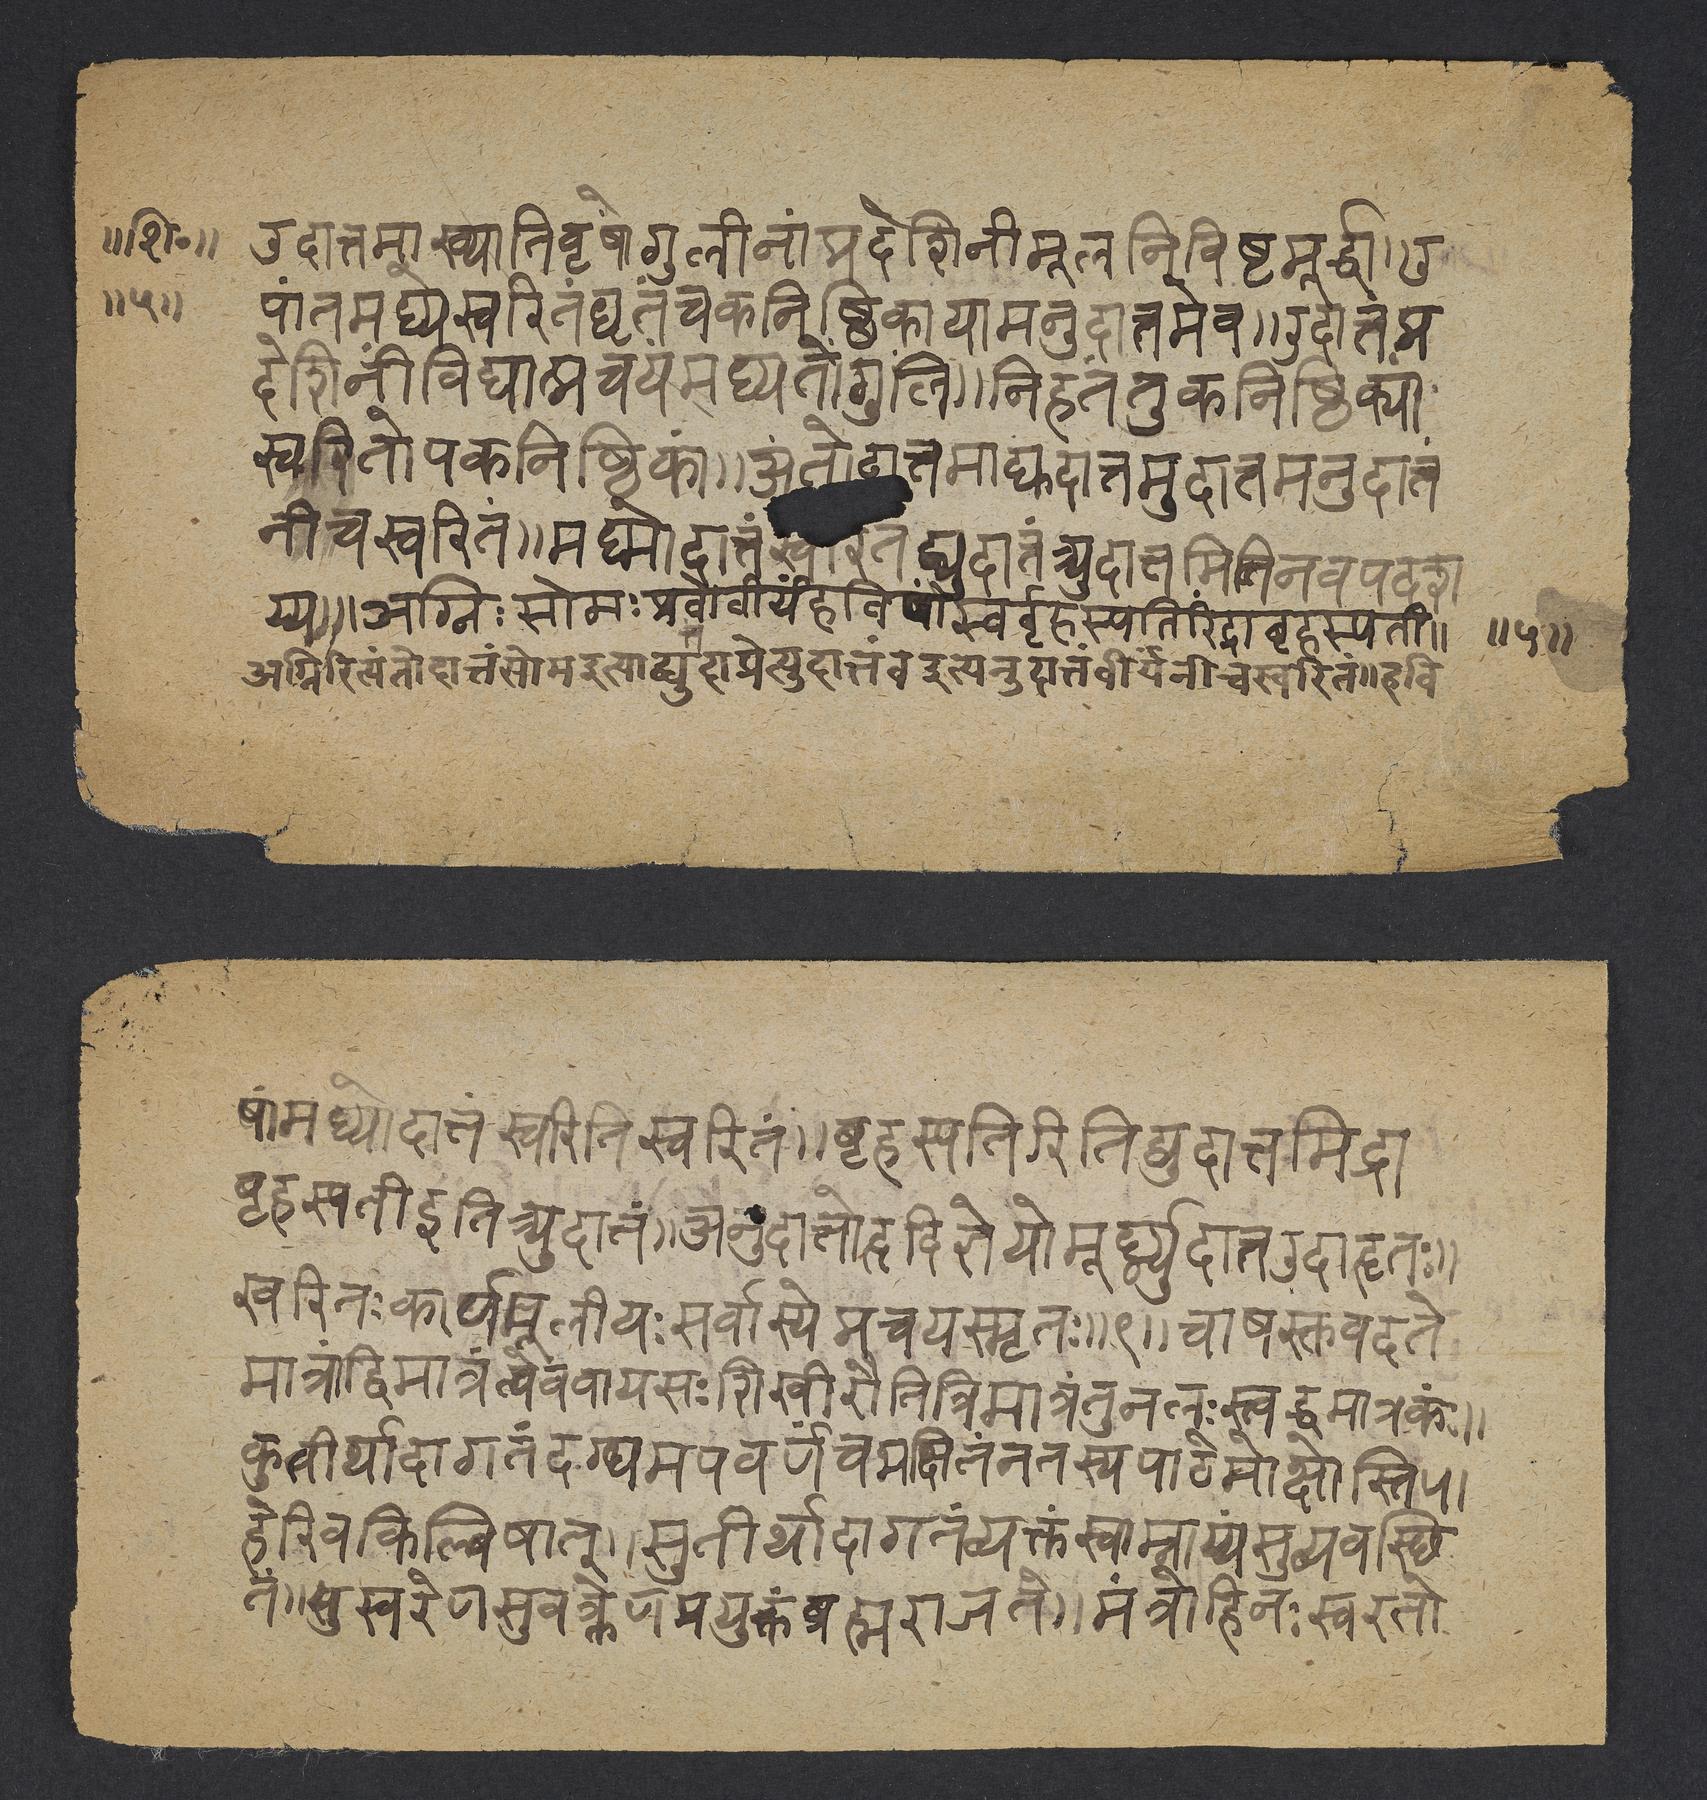 ॥शि॰॥ उदात्तमाख्यातिवृषोंगुलीनांप्रदेशिनीमूलनिविष्टमूर्द्धा॥उ
॥५॥ पांतमध्येस्वरितंधृतंचकनिष्ठिकायामनुदात्तमेव॥उदात्तंप्र
देशिनींविद्यात्प्रचयंमध्यतोंगुलिं॥निहतंतुकनिष्ठिक्यां
स्वरितोपकनिष्ठिकां॥अंतोदात्तमाद्युदात्तमुदात्तमनुदात्तं
नीचस्वरितं॥मध्योदात्तंस्वरितंद्व्युदात्तंत्र्युदात्तमितिनवपदशा
य्य॥॥अग्निःसोमःप्रवोवीर्यंहविषांस्वर्बृहस्पतिरिंद्राबृहस्पती॥ ॥५॥
अग्निरित्यंतोदात्तंसोमइत्याद्युदात्तंप्रेत्युदात्तंवइत्यनुदात्तंवीर्यंनीचस्वरितं॥हवि
षांमध्योदात्तंस्वरितिस्वरितं॥बृहस्पतिरितिद्व्युदात्तमिंद्रा
बृहस्पतीइतित्र्युदात्तं॥अनुदात्तोहृदिज्ञेयोमूर्द्ध्न्युदात्तउदाहृतः॥
स्वरितःकार्णमूलीयःसर्वास्येप्रचयस्मृतः॥९॥चाषस्तवदते
मात्रांद्विमात्रंत्वेववायसःशिखीरौतित्रिमात्रंतुनलःस्त्वर्द्धमात्रकं॥
कुतीर्थादागतंदग्धमपवर्णंचभक्षितंनतस्यपाठेमोक्षोस्तिपा
हेरिवकिल्बिषात्॥सुतीर्थादागतंव्यक्तंस्वाम्नाय्यंसुव्यवस्थि
तं॥सुस्वरेणसुवक्त्रेणप्रयुक्तंब्रह्मराजते॥मंत्रोहिनःस्वरतो